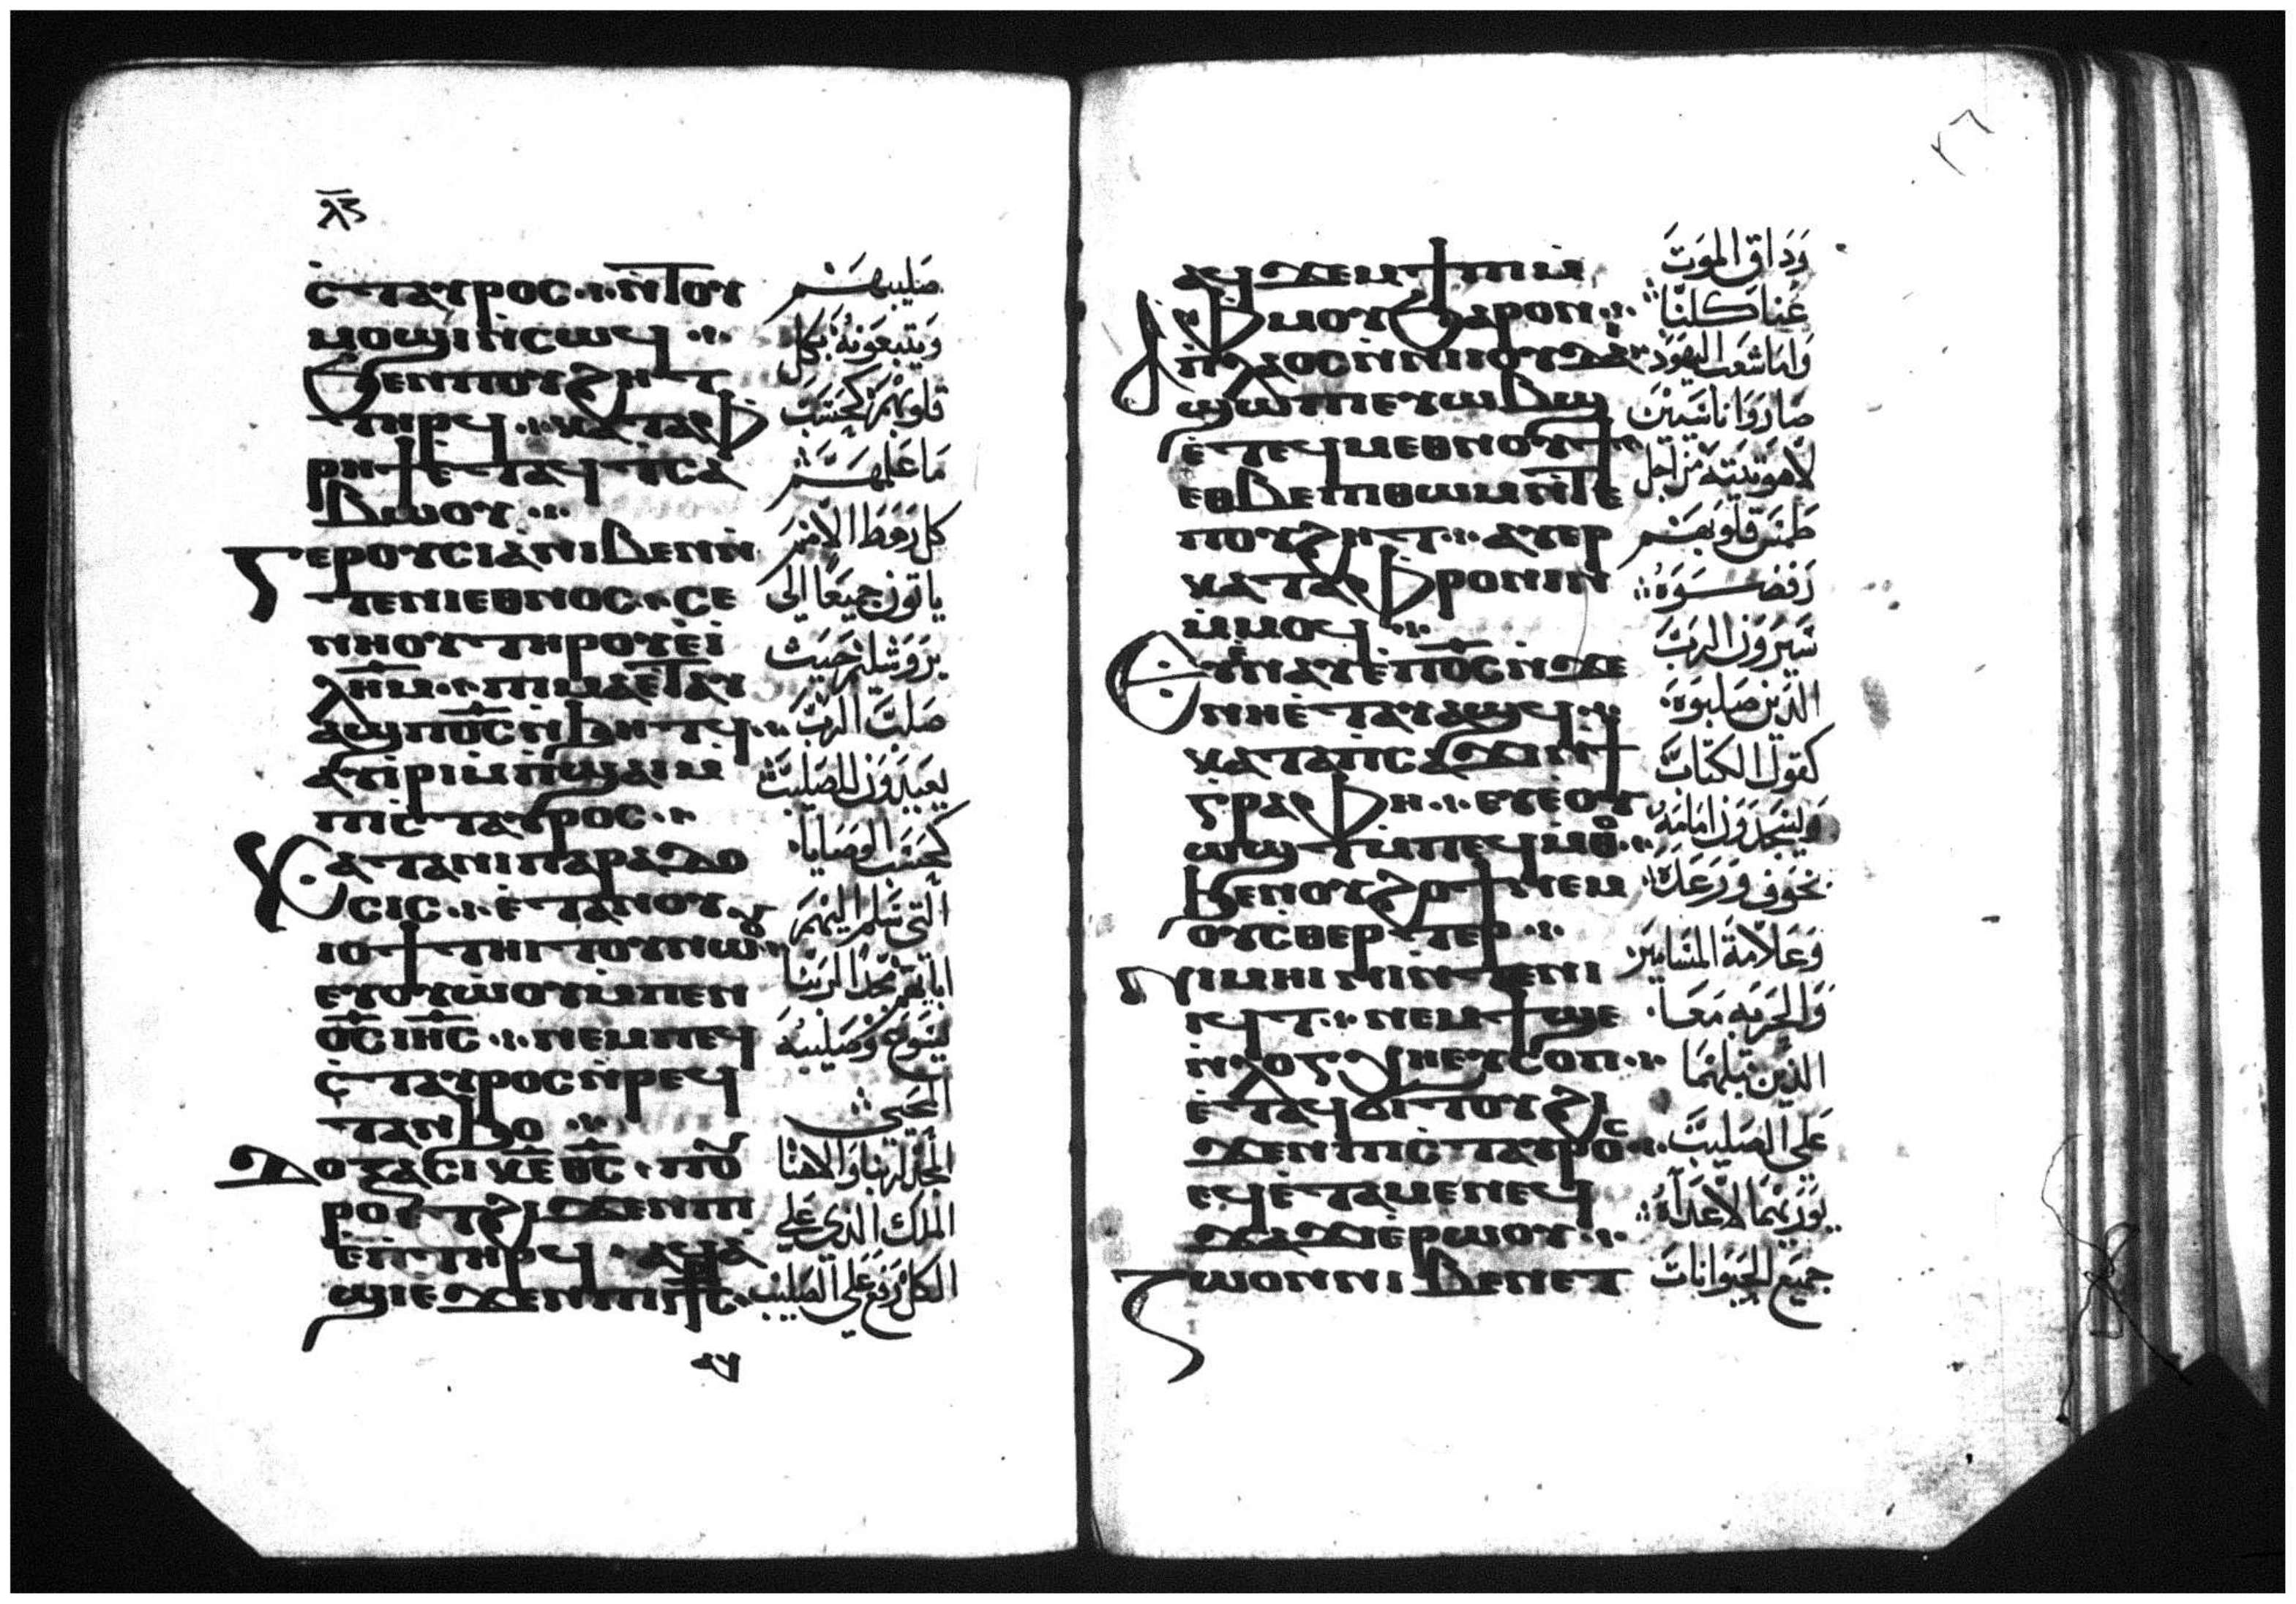 ⲗ̅ⲍ̅
ⲥ̀ⲧⲁⲩⲣⲟⲥ ⁘ ⲛ̅ⲧⲟⲩ
ⲙⲟϣⲓ ⲛ̀ⲥⲱϥ ⁘
ϧⲉⲛ ⲡⲟⲩϩⲏⲧ
ⲧⲏⲣϥ ⁘ ⲕⲁⲧⲁ ⲫ
ⲣⲏϯ ⲉ̀ⲧⲁϥⲧⲥⲁ
ⲃⲱⲟⲩ ⁘
ⲅⲉⲣⲟⲩⲥⲓⲁ ⲛⲓⲃⲉⲛ ⲛ̀
ⲧⲉ ⲛⲓⲉⲑⲛⲟⲥ ⁘ ⲥⲉ
ⲛⲏⲟⲩ ⲧⲏⲣⲟⲩ ⲉ̀ⲓ̀
ⲗ̅ⲏ̅ⲙ̅ ⁘ ⲡⲓⲙⲁ ⲉ̅ⲧⲁⲩ
ⲁϣ ⲡ̅ⲟ̅ⲥ̅ ⲛ̀ϧⲏⲧϥ ⁘
ⲁⲩⲓ̀ⲣⲓ ⲙ̀ⲡ̀ϣⲁⲓ ⲙ̀
ⲡⲓⲥ̀ⲧⲁⲩⲣⲟⲥ ⁘
ⲕⲁⲧⲁ ⲛⲓⲡⲁⲣⲁⲇⲟ
ⲥⲓⲥ ⁘ ⲉ̀ⲧⲁ ⲛⲟⲩ
ⲓⲟϯ ⲧⲏⲓⲧⲟⲩ ⲛⲱⲟⲩ
ⲉⲩϯⲱⲟⲩ ⲙ̀ⲡⲉⲛ
ⲟ̅ⲥ̅ ⲓ̅ⲏ̅ⲥ̅ ⁘ ⲛⲉⲙ ⲡⲉϥ
ⲥ̀ⲧⲁⲩⲣⲟⲥ ⲛ̀ⲣⲉϥ
ⲧⲁⲛϧⲟ ⁘
ⲇⲟⲝⲁⲥⲓ ⲕ̅ⲉ̅ ⲑ̅ⲥ̅ ⁘ ⲡⲟⲩ
ⲣⲟ ⲉ̀ⲧϩⲓϫⲉⲛ ⲡⲓ
ⲉⲡⲧⲏⲣϥ ⁘ ⲁⲩⲁ
ϣⲓⲉ ϫⲉⲛ ⲡⲓⲥ̅ⳁⲥ
ⲁϥ
صليبهم
ويتبعونه بكل
قلوبهم كحسب
ما علمهم
كل رهط الامم
ياتون جميعا الى
يروشليم حيث
صلب الرب
يعيدون للصليب
كحسب الوصايا
التي سلم اليهم
اباهم مجدا لربنا
يسوع وصليبه
المحيي
المجد لربنا والاهنا
الملك الذي على
الكل رفع على الصليب
٣٦
ⲁϥϫⲉⲙϯⲡⲓ ⲙ̀
ⲫⲙⲟⲩ ϧⲁⲣⲟⲛ ⁘
ⲡ̀ⲗⲁⲟⲥ ⲛ̀ⲛⲓⲓⲟⲩⲇⲁⲓ
ϣⲱⲡⲓ ⲉⲩⲱⲃϣ
ⲉ̀ⲧⲉϥⲙⲉⲑⲛⲟⲩϯ
ⲉⲑⲃⲉ ⲡⲓⲑⲱⲙ ⲛ̅ⲧⲉ
ⲡⲟⲩϩⲏⲧ ⁘ ⲁⲩⲉⲣ
ⲕⲁⲧⲁⲫⲣⲟⲛⲓⲛ
ⲙ̀ⲙⲟϥ ⁘
ⲉⲩⲛⲁⲩ ⲉ̀ⲡ̅ⲟ̅ⲥ̅ ⲛ̀ϫⲉ
ⲛⲏ ⲉ̀ⲧⲁⲩⲁϣϥ ⁘
ⲕⲁⲧⲁ ⲡ̀ⲥⲁϫⲓ ⲛ̀ϯ
ⲅⲣⲁⲫⲏ ⁘ ⲉⲩⲉⲟⲩ
ⲱϣⲧ ⲙ̀ⲡⲉϥⲙⲑⲟ ⁘
ϧⲉⲛ ⲟⲩϩⲟϯ ⲛⲉⲙ
ⲟⲩⲥⲑⲉⲣⲧⲉⲣ ⁘
ⲡⲓⲙⲏⲓⲛⲓ ⲛ̀ⲧⲉ ⲛⲓ
ⲓϥⲧ ⁘ ⲛⲉⲙ ϯϣⲉ
ⲛ̀ⲗⲟⲅⲭⲏ ⲉⲩⲥⲟⲡ ⁘
ⲉ̀ⲧⲁϥϭⲓⲧⲟⲩ ϩⲓ
ϫⲉⲛ ⲡⲓⲥ̀ⲧⲁⲩⲣⲟⲥ ⁘
ⲉϥⲉ̀ⲧⲁⲙⲉ ⲛⲉϥ
ϫⲁϫⲓ ⲉⲣⲱⲟⲩ ⁘
ⲍⲱⲟⲛ ⲛⲓⲃⲉⲛ ⲉⲧ
وذاق الموت
عنا كلنا
واما شعب اليهود
صاروا ناسيين
لاهوتيته من اجل
طمس قلوبهم
رفضوه
سيرون الرب
الذين صلبوه
كقول الكتاب
ويسجدون امامه
بخوف ورعدة
وعلامة المسامير
والحربه معا
الذين قبلهما
على الصليب
يوريهما لاعداه
جميع الحيوانات